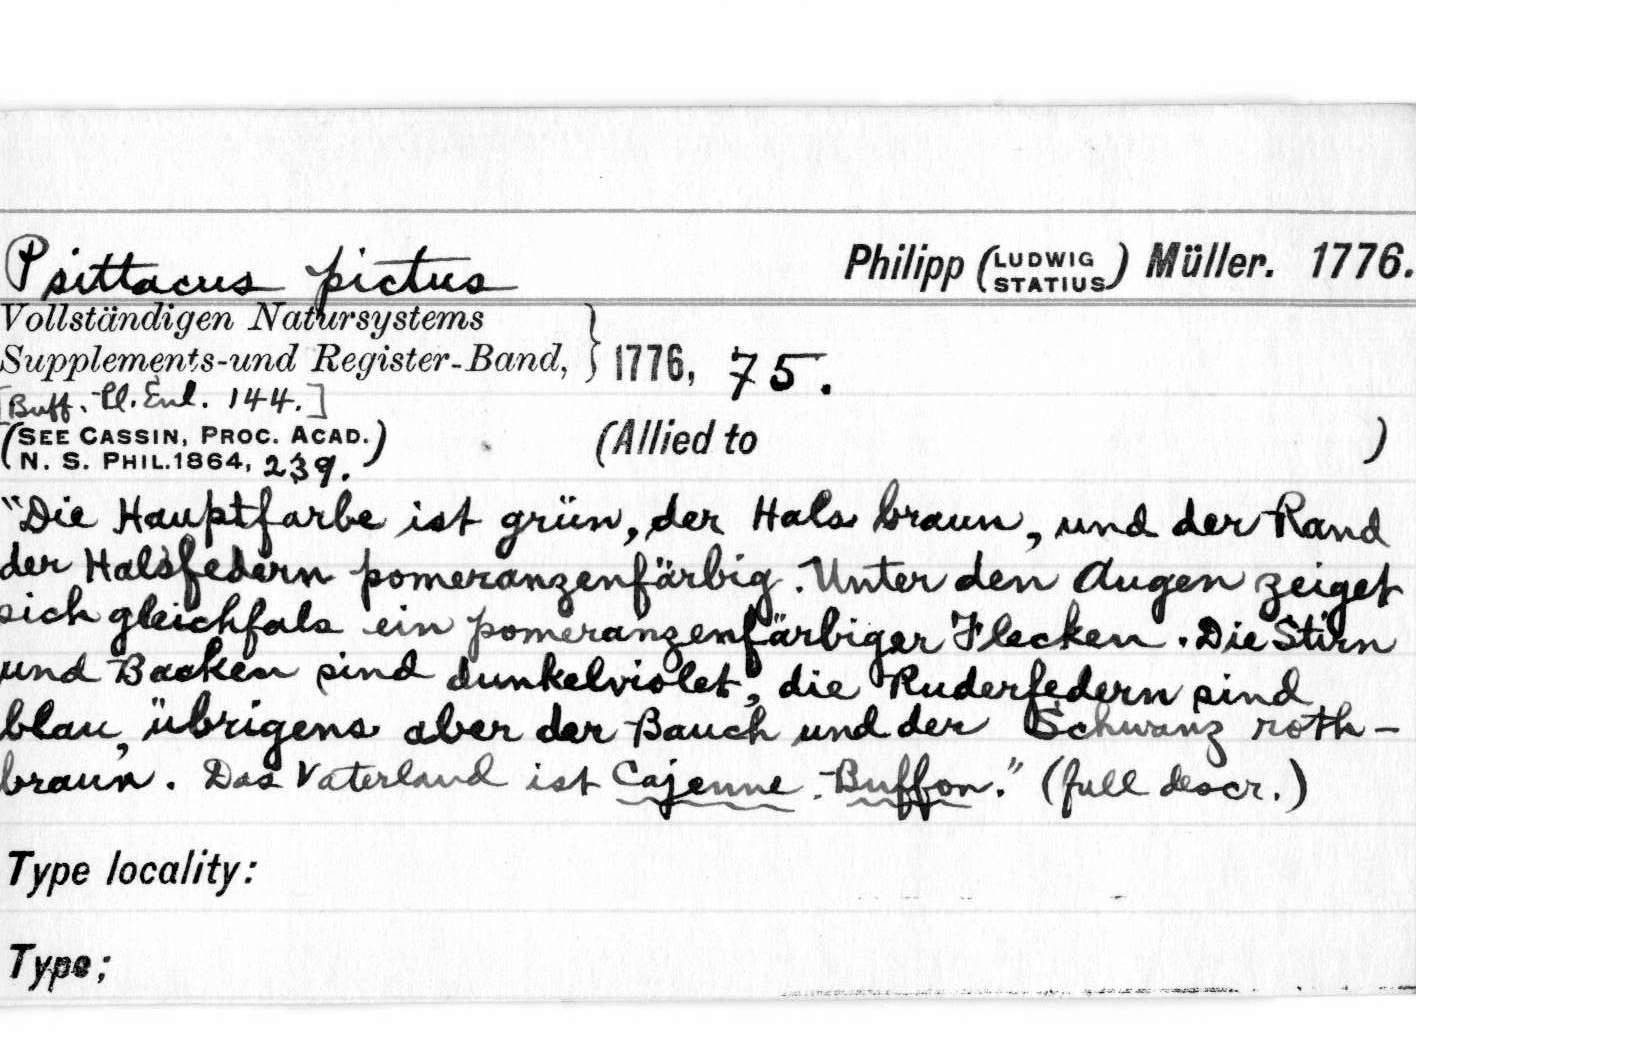 Psittacus pictus Philipp (LUDWIG STATIUS) Müller. 1776.
Vollständigen Natursystems
Supplements-und Register-Band, } 1776, 75.
[Buff. Pl. Enl. 144.]
(SEE CASSIN, PROC. ACAD. (Allied to )
N. S. PHIL. 1864, 239.)
"Die Hauptfarbe ist grün, der Hals braun, und der Rand
der Halsfedern pomeranzenfärbig. Unter den Augen zeiget
sich gleichfals ein pomeranzenfärbiger Flecken. Die Stirn
und Backen sind dunkelviolet, die Ruderfedern sind
blau, übrigens aber der Bauch und der Schwanz roth-
braun. Das Vaterland ist Cajenne. Buffon." (full descr.)
Type locality:
Type;